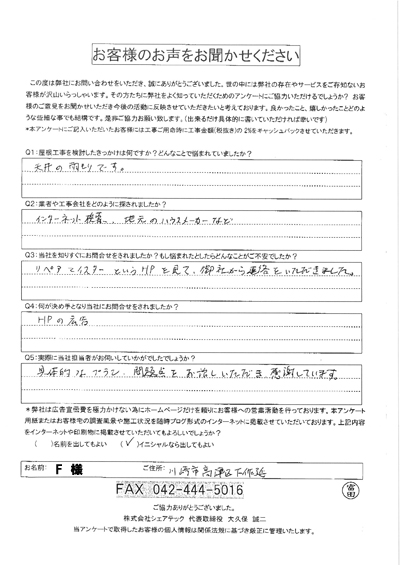 お客様のお声をお聞かせください
この度は弊社にお問い合わせをいただき、誠にありがとうございました。世の中には弊社の存在やサービスをご存知ないお
客様が沢山いらっしゃいます。その方たちに弊社をよく知っていただくためのアンケートにご協力いただけるでしょうか？ お客
様のご意見をお聞かせいただき今後の活動に反映させていただきたいと考えております。良かったこと、嬉しかったことどのよ
うな些細な事でも結構です。是非ご協力お願い致します。（出来るだけ具体的に書いていただければ幸いです）
*本アンケートにご記入いただいたお客様には工事ご用命時に工事金額(税抜き)の2%をキャッシュバックさせていただきます。
Q1:屋根工事を検討したきっかけは何ですか？どんなことで悩まれていましたか？
天井の雨もりです。
Q2:業者や工事会社をどのように探されましたか？
インターネット検索、地元のハウスメーカーなど
Q3:当社を知りすぐにお問合せをされましたか？もし悩まれたとしたらどんなことがご不安でしたか？
リペアマイスターというHPを見て、御社から連絡をいただきました。
Q4:何が決め手となり当社にお問合せをされましたか？
HPの広告
Q5:実際に当社担当者がお伺いしていかがでしたでしょうか？
具体的なプラン、問題点をお話しいただき感謝しています。
*弊社は広告宣伝費を極力かけない為にホームページだけを頼りにお客様への営業活動を行っております。本アンケート
用紙またはお客様宅の調査風景や施工状況を随時ブログ形式のインターネットに掲載させていただいております。上記内容
をインターネットや印刷物に掲載させていただいてもよろしいでしょうか？
（ ）名前を出してもよい （✓）イニシャルなら出してもよい
お名前： F 様 ご住所： 川崎市高津区下作延
FAX 042-444-5016
富田
ご協力ありがとうございました。
株式会社シェアテック 代表取締役 大久保 誠二
当アンケートで取得したお客様の個人情報は関係法規に基づき厳正に管理いたします。